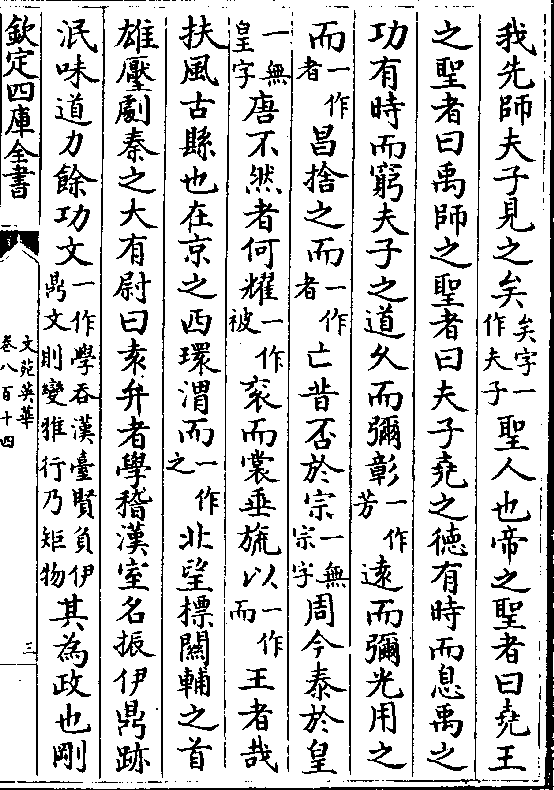 我先師夫子見之矣矣字一作夫子聖人也帝之聖者曰堯王
之聖者曰禹師之聖者曰夫子堯之德有時而息禹之
功有時而窮夫子之道久而彌彰一作芳遠而彌光用之
而一作者昌捨之而一作者亡昔否於宗一無宗字周今泰於皇
一無皇字唐不然者何耀一作被袞而裳垂旒以一作而王者哉
扶風古縣也在京之西環渭而一作之北望標關輔之首
雄壓劇秦之大有尉曰袁弁者學稽漢室名振伊鼎跡
泯味道力餘功文一作學吞漢臺賢負伊鼎文則變雅行乃矩物其為政也剛
欽定四庫全書
文苑英華
卷八百十四
三